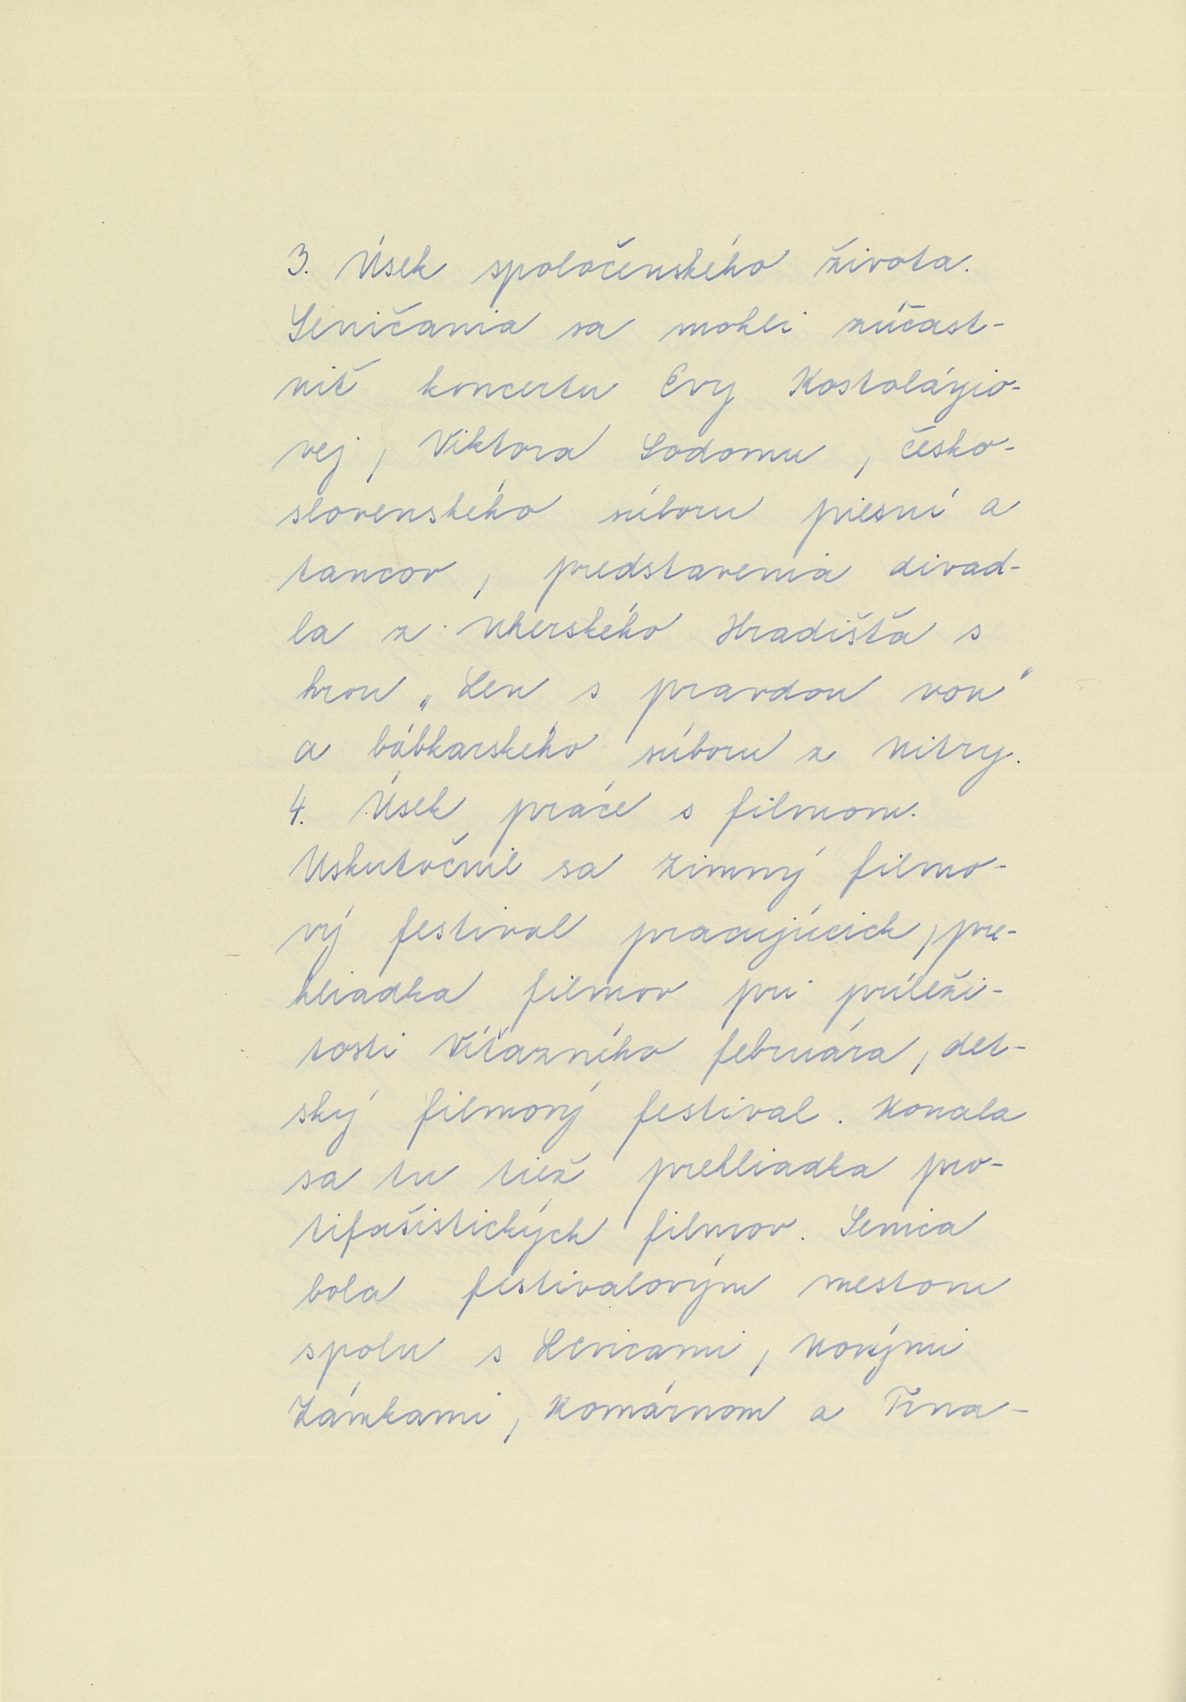 3. Úsek spoločenského života.
Seničania sa mohli zúčast-
niť koncertu Evy Kostolányio-
vej, Viktora Sodomu, česko-
slovenského súboru piesní a
tancov, predstavenia divad-
la z Uherského Hradišťa s
hrou „Len s pravdou von"
a bábkarského súboru z Nitry.
4. Úsek práce s filmom.
Uskutočnil sa zimný filmo-
vý festival pracujúcich, pre-
hliadka filmov pri príleži-
tosti Víťazného februára, det-
ský filmový festival. Konala
sa tu tiež prehliadka pro-
tifašistických filmov. Senica
bola festivalovým mestom
spolu s Levicami, Novými
Zámkami, Komárnom a Trna-